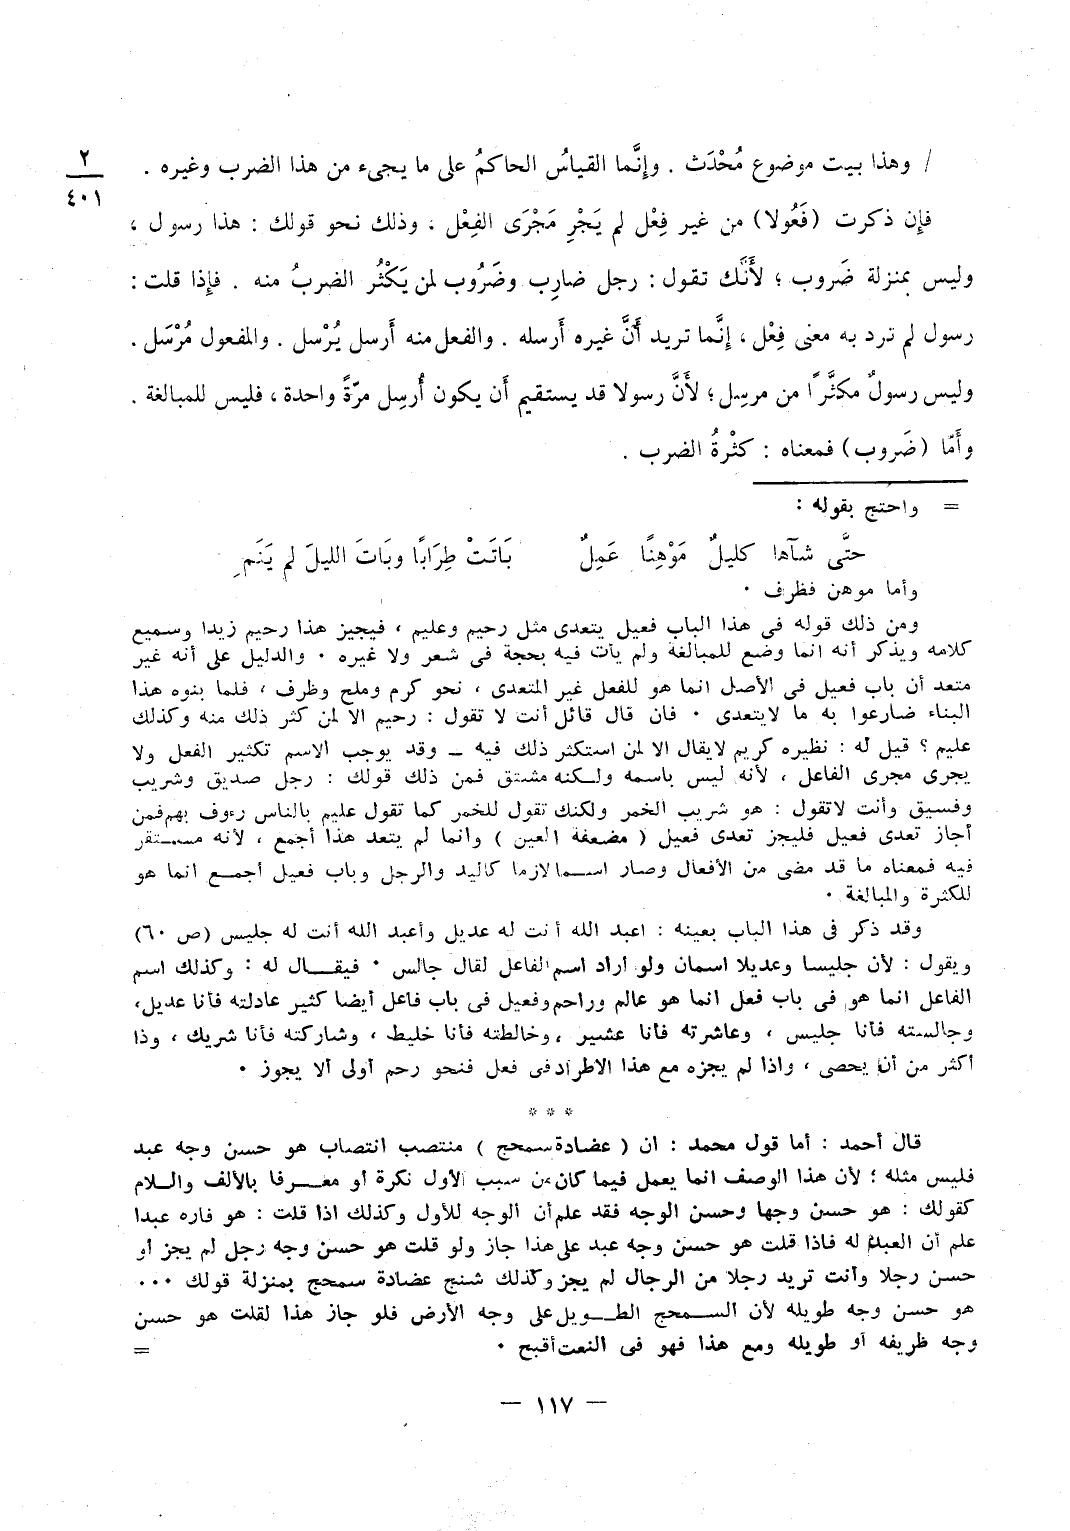 / وهذا بيت موضوع مُحْدَث . وإِنَّما القياسُ الحاكمُ على ما يجيء من هذا الضرب وغيره .
٢
٤٠١
فإِن ذكرت (فَعُولا) من غير فِعْل لم يَجْرِ مَجْرَى الفِعْل ، وذلك نحو قولك : هذا رسول ،
وليس بمنزلة ضَروب ؛ لأَنَّك تقول : رجل ضارِب وضَرُوب لمن يَكْثُر الضربُ منه . فإِذا قلت :
رسول لم ترد به معنى فِعْل ، إِنَّما تريد أَنَّ غيره أَرسله . والفعل منه أَرسل يُرْسل . والمفعول مُرْسَل .
وليس رسولٌ مكثَّرًا من مرسِل ؛ لأَنَّ رسولا قد يستقيم أَن يكون أُرسِل مرّةً واحدة ، فليس للمبالغة .
وأَمّا (ضَروب) فمعناه : كثْرةُ الضرب .
= واحتج بقوله :
حتَّى شآها كليلٌ مَوْهِنًا عَمِلٌ بَاتَتْ طِرَابًا وبَاتَ الليلَ لم يَنَمِ
وأما موهن فظرف ٠
ومن ذلك قوله فى هذا الباب فعيل يتعدى مثل رحيم وعليم ، فيجيز هذا رحيم زيدا وسميع
كلامه ويذكر أنه انما وضع للمبالغة ولم يأت فيه بحجة فى شعر ولا غيره ٠ والدليل على أنه غير
متعد أن باب فعيل فى الأصل انما هو للفعل غير المتعدى ، نحو كرم وملح وظرف ، فلما بنوه هذا
البناء ضارعوا به ما لايتعدى ٠ فان قال قائل أنت لا تقول : رحيم الا لمن كثر ذلك منه وكذلك
عليم ؟ قيل له : نظيره كريم لايقال الا لمن استكثر ذلك فيه ـ وقد يوجب الاسم تكثير الفعل ولا
يجرى مجرى الفاعل ، لأنه ليس باسمه ولكنه مشتق فمن ذلك قولك : رجل صديق وشريب
وفسيق وأنت لاتقول : هو شريب الخمر ولكنك تقول للخمر كما تقول عليم بالناس رءوف بهم فمن
أجاز تعدى فعيل فليجز تعدى فعيل ( مضعفة العين ) وانما لم يتعد هذا أجمع ، لأنه مستقر
فيه فمعناه ما قد مضى من الأفعال وصار اسما لازما كاليد والرجل وباب فعيل أجمع انما هو
للكثرة والمبالغة ٠
وقد ذكر فى هذا الباب بعينه : اعبد الله أنت له عديل وأعبد الله أنت له جليس (ص ٦٠)
ويقول : لأن جليسا وعديلا اسمان ولو أراد اسم الفاعل لقال جالس ٠ فيقال له : وكذلك اسم
الفاعل انما هو فى باب فعل انما هو عالم وراحم وفعيل فى باب فاعل أيضا كثير عادلته فأنا عديل،
وجالسته فأنا جليس ، وعاشرته فأنا عشير ، وخالطته فأنا خليط ، وشاركته فأنا شريك ، وذا
أكثر من أن يحصى ، واذا لم يجزه مع هذا الاطراد فى فعل فنحو رحم أولى ألا يجوز ٠
* * *
قال أحمد : أما قول محمد : ان ( عضادة سمحج ) منتصب انتصاب هو حسن وجه عبد
فليس مثله ؛ لأن هذا الوصف انما يعمل فيما كان من سبب الأول نكرة أو معرفا بالألف واللام
كقولك : هو حسن وجها وحسن الوجه فقد علم أن الوجه للأول وكذلك اذا قلت : هو فاره عبدا
علم أن العبد له فاذا قلت هو حسن وجه عبد على هذا جاز ولو قلت هو حسن وجه رجل لم يجز أو
حسن رجلا وأنت تريد رجلا من الرجال لم يجز وكذلك شنج عضادة سمحج بمنزلة قولك ٠٠٠
هو حسن وجه طويله لأن السمحج الطويل على وجه الأرض فلو جاز هذا لقلت هو حسن
وجه ظريفه أو طويله ومع هذا فهو فى النعت أقبح ٠ =
— ١١٧ —